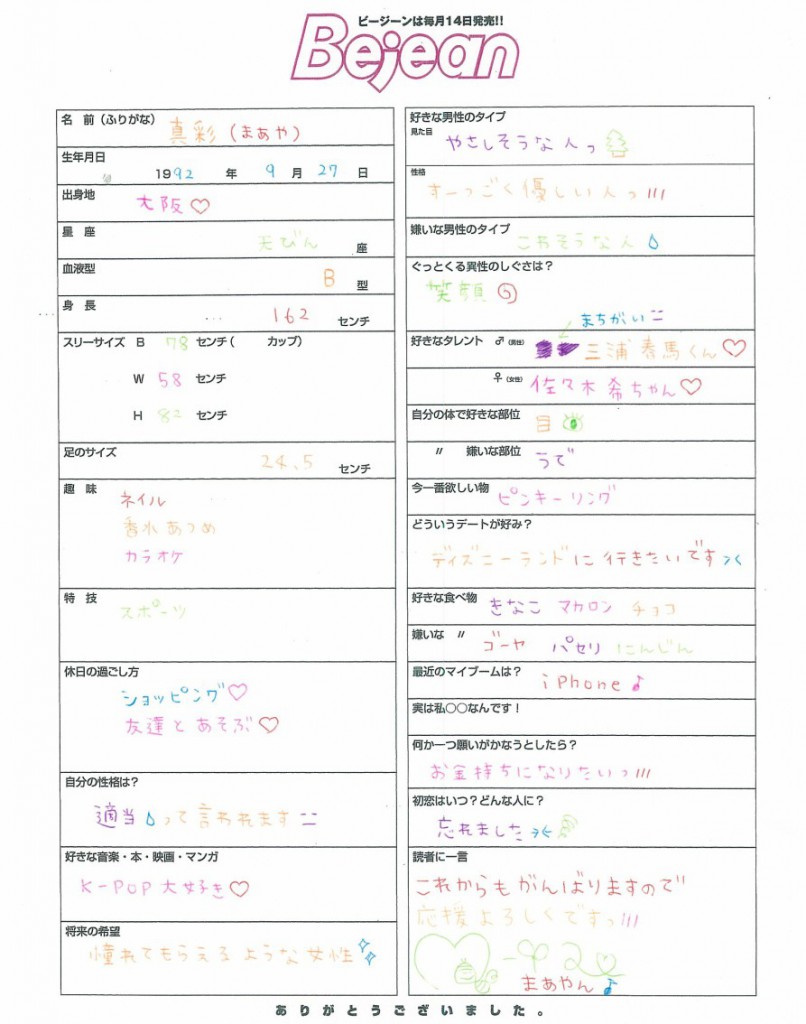 ビージーンは毎月14日発売!!
Bejean
名 前(ふりがな)
真彩(まあや)
生年月日
1992 年 9 月 27 日
出身地
大阪♡
星 座
天びん 座
血液型
B 型
身 長
162 センチ
スリーサイズ B 78 センチ( カップ)
W 58 センチ
H 82 センチ
足のサイズ
24.5 センチ
趣 味
ネイル
香水あつめ
カラオケ
特 技
スポーツ
休日の過ごし方
ショッピング♡
友達とあそぶ♡
自分の性格は?
適当って言われます
好きな音楽・本・映画・マンガ
K-POP大好き♡
将来の希望
憧れてもらえるような女性
好きな男性のタイプ
見た目
やさしそうな人っ
性格
すーっごく優しい人っ!!!
嫌いな男性のタイプ
こわそうな人
ぐっとくる異性のしぐさは?
笑顔
まちがい
好きなタレント ♂(男性) 三浦春馬くん♡
♀(女性) 佐々木希ちゃん♡
自分の体で好きな部位
目
〃 嫌いな部位
うで
今一番欲しい物
ピンキーリング
どういうデートが好み?
ディズニーランドに行きたいです
好きな食べ物 きなこ マカロン チョコ
嫌いな 〃 ゴーヤ パセリ にんじん
最近のマイブームは?
iPhone♪
実は私○○なんです!
何か一つ願いがかなうとしたら?
お金持ちになりたいっ!!!
初恋はいつ?どんな人に?
忘れました
読者に一言
これからもがんばりますので
応援よろしくですっ!!!
まあやん♪
ありがとうございました。